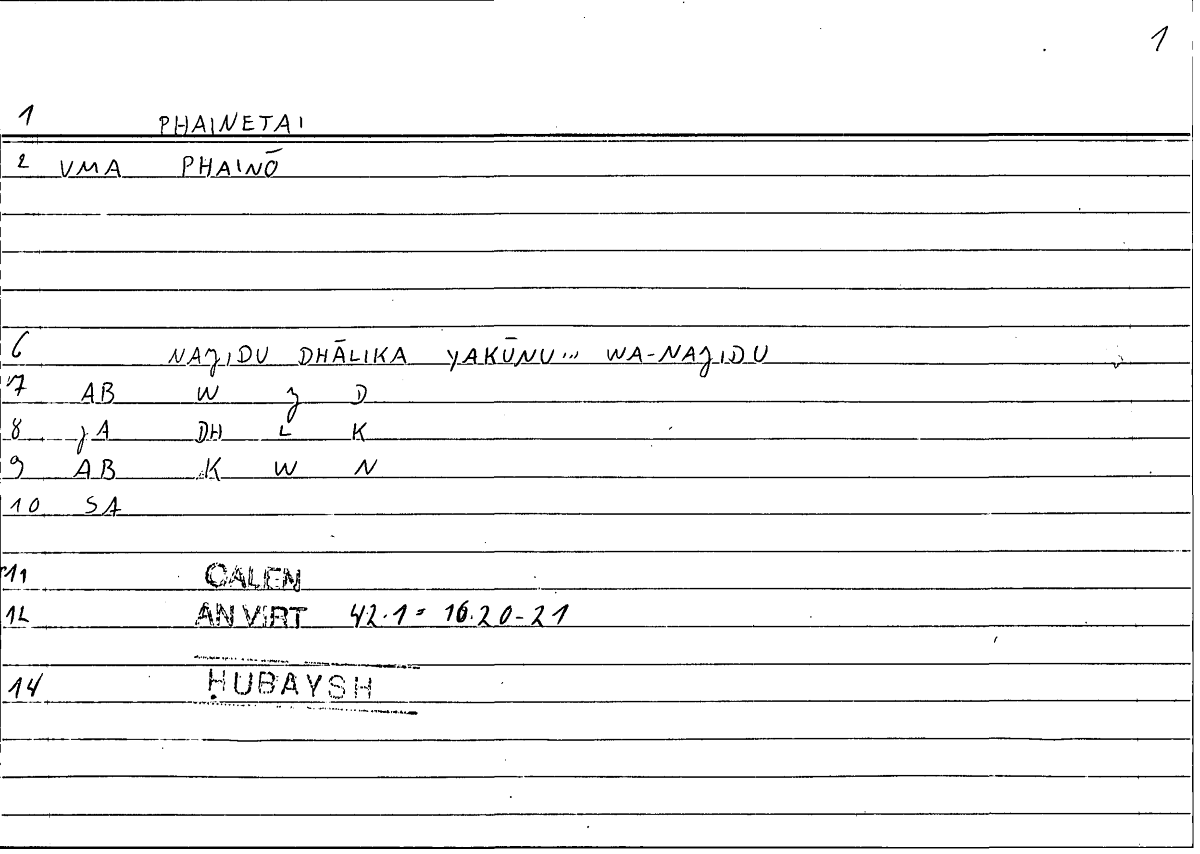 1
1 PHAINETAI
2 VMA PHAINŌ
6 NAJIDU DHĀLIKA YAKŪNU... WA-NAJIDU
7 AB W J D
8 JA DH L K
9 AB K W N
10 SA
11 GALEN
12 AN VIRT 42.1 = 16.20-21
14 ḤUBAYSH